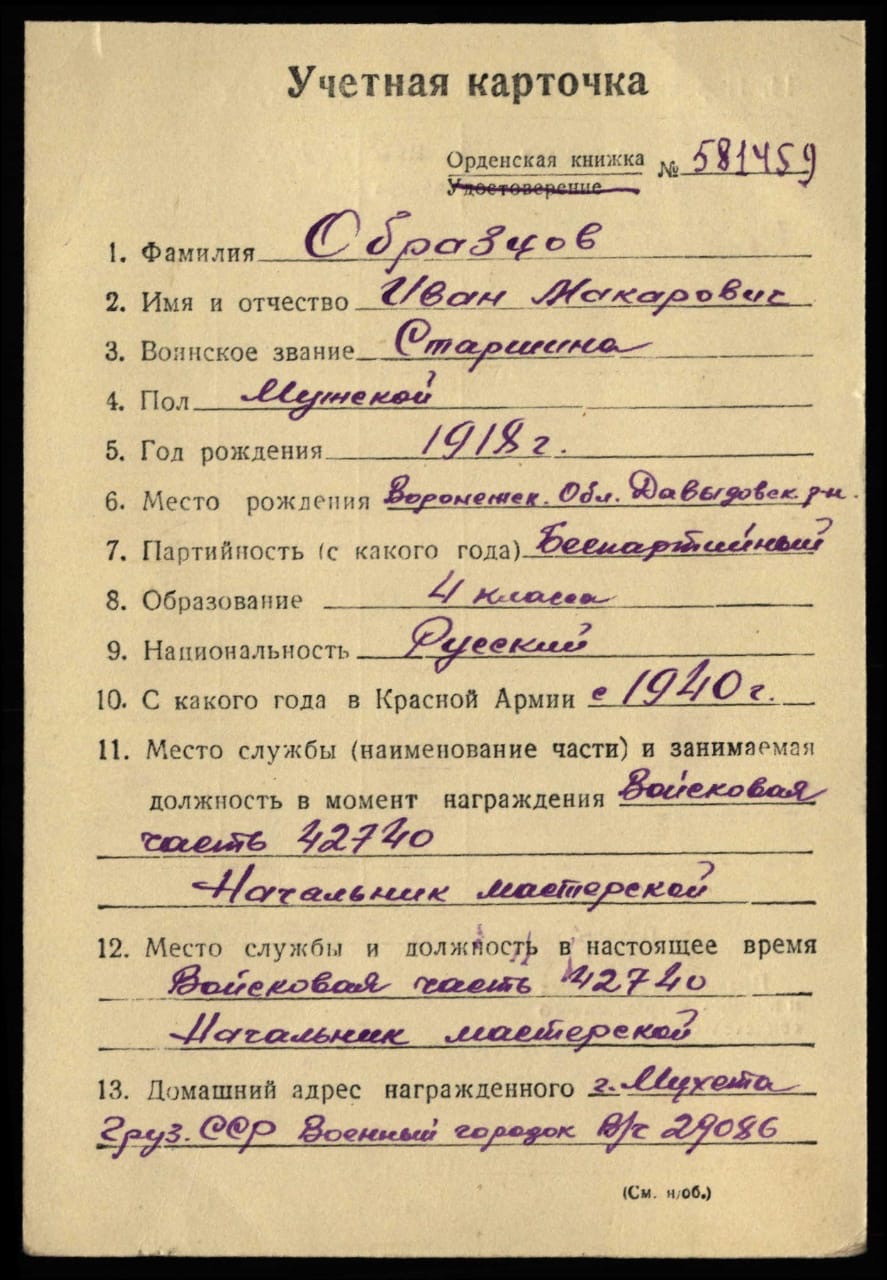 Учетная карточка
Орденская книжка № 581459
Удостоверение
1. Фамилия Образцов
2. Имя и отчество Иван Макарович
3. Воинское звание Старшина
4. Пол Мужской
5. Год рождения 1918 г.
6. Место рождения Воронежск. Обл. Давыдовск. р-н.
7. Партийность (с какого года) Беспартийный
8. Образование 4 класса
9. Национальность Русский
10. С какого года в Красной Армии с 1940 г.
11. Место службы (наименование части) и занимаемая
должность в момент награждения Войсковая
часть 42740
Начальник мастерской
12. Место службы и должность в настоящее время
Войсковая часть 42740
Начальник мастерской
13. Домашний адрес награжденного г. Мцхета
Груз. ССР Военный городок В/ч 29086
(См. н/об.)